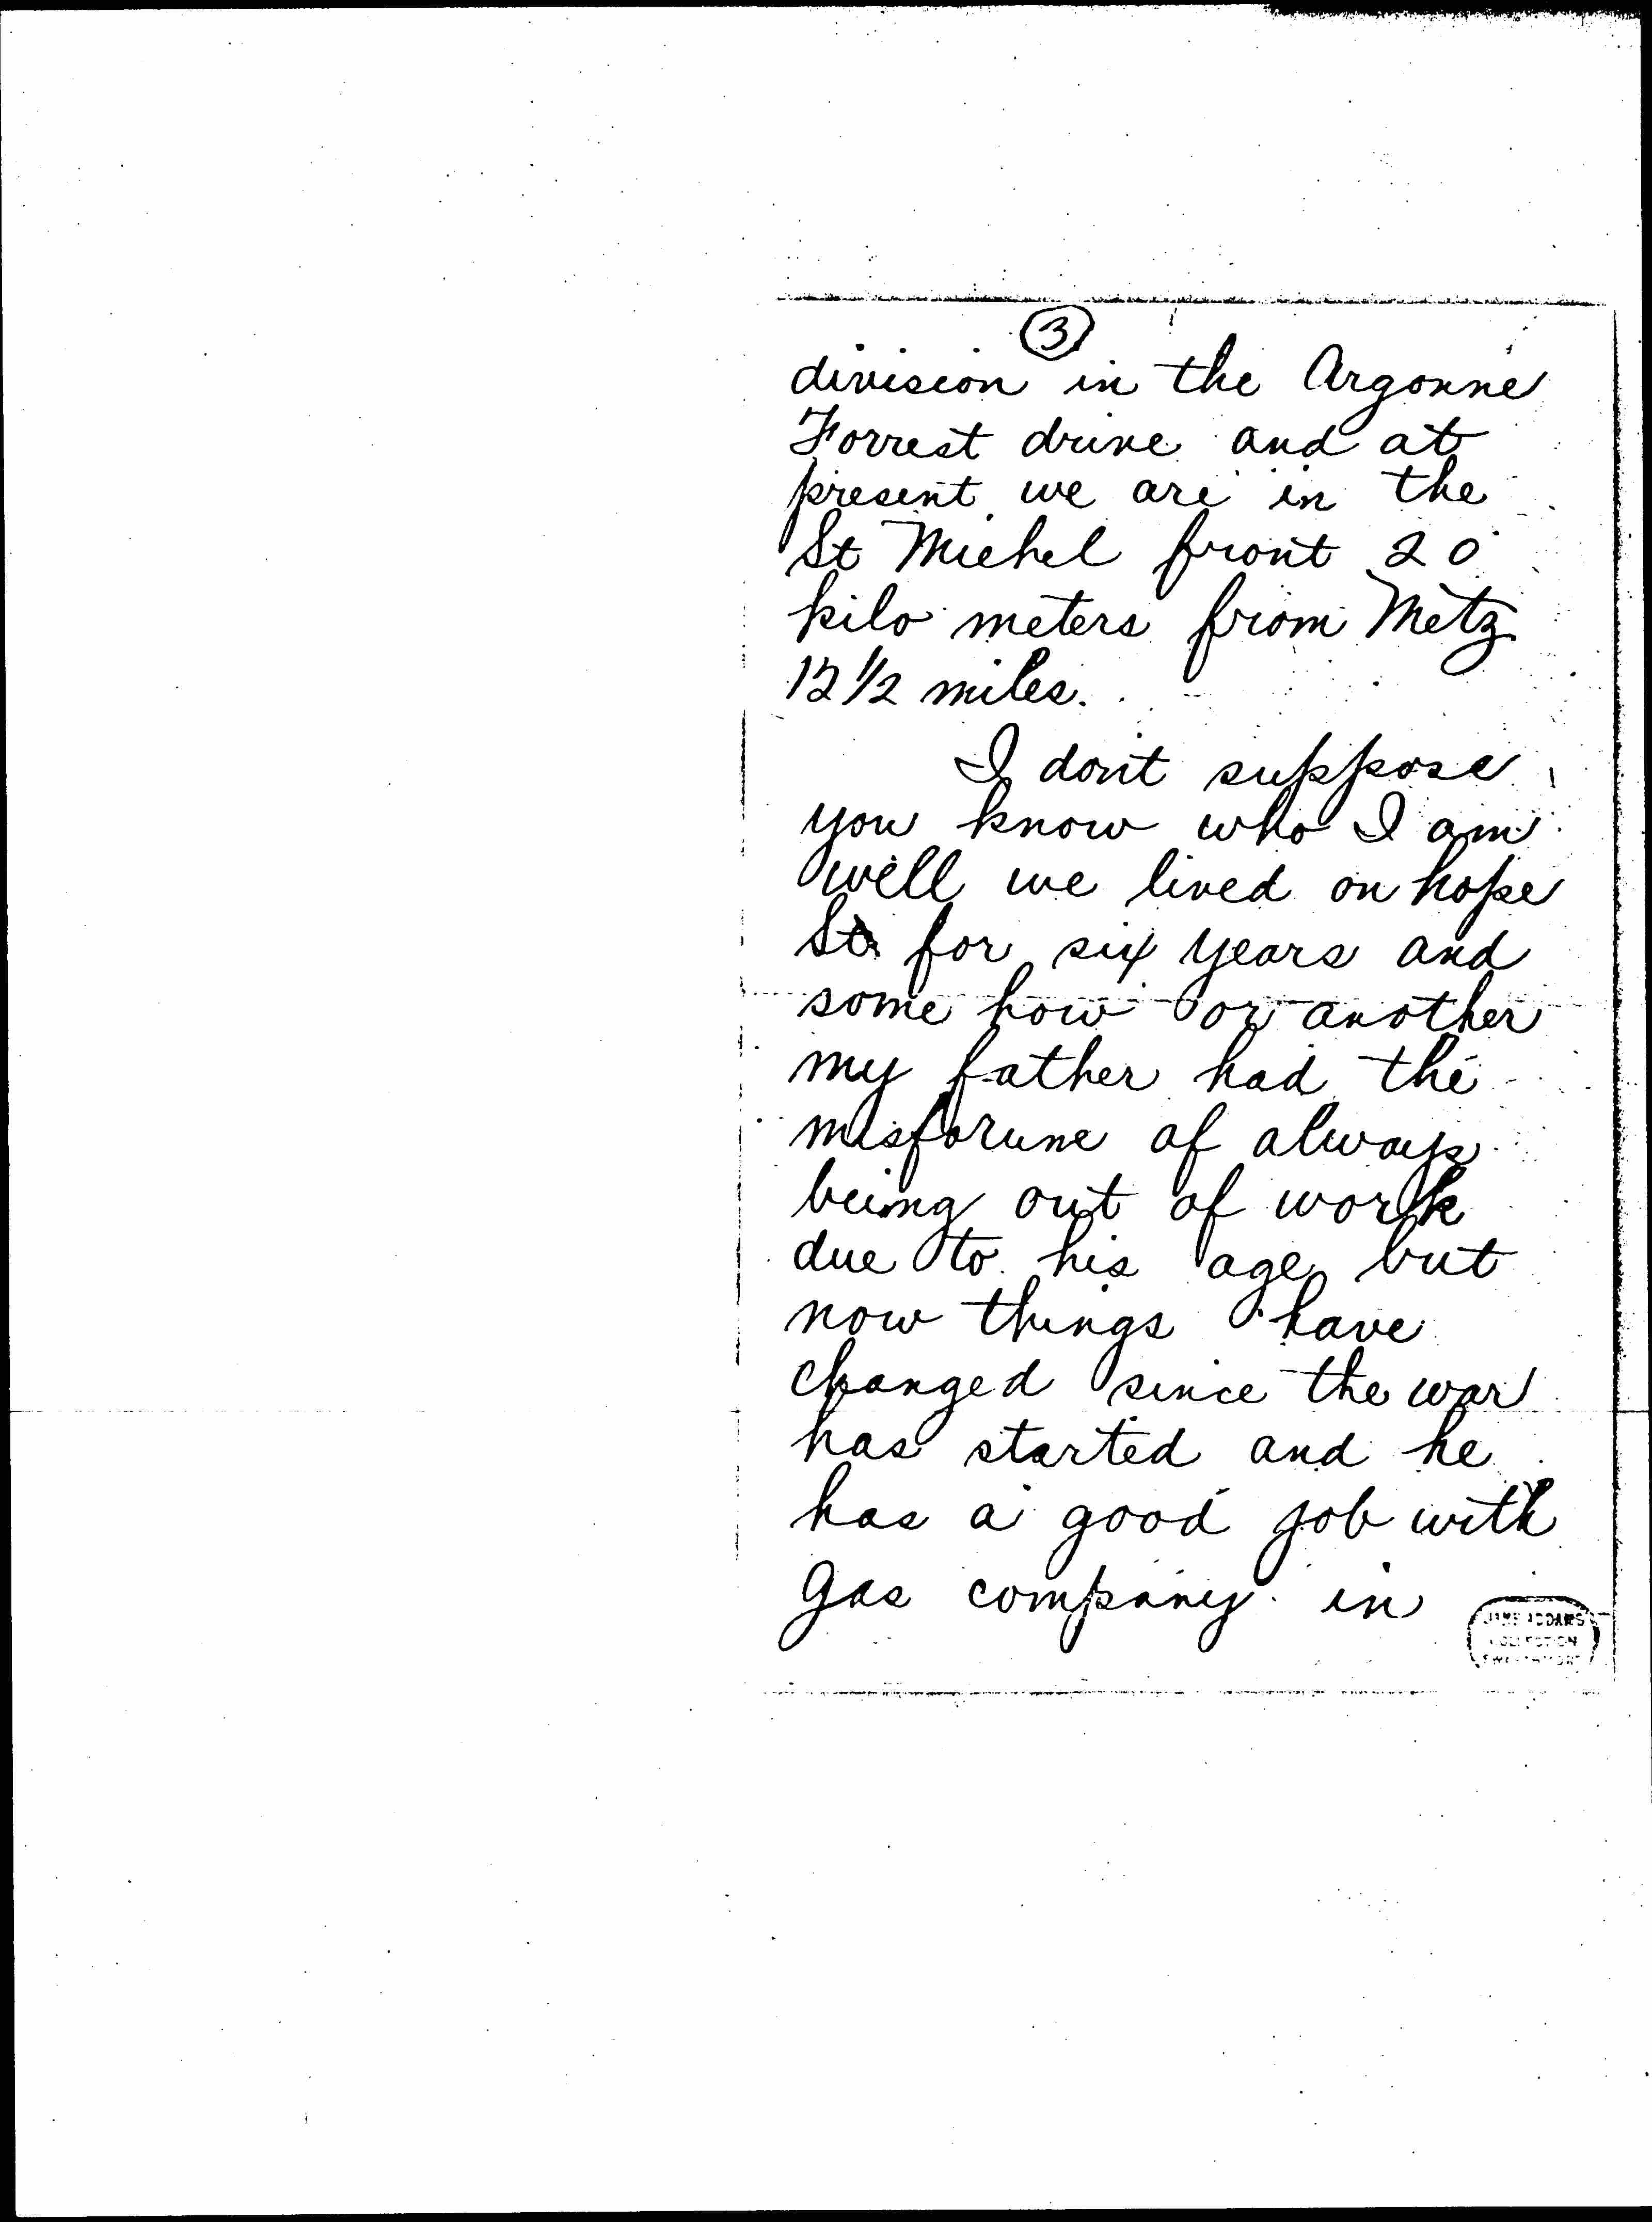 3
division in the Argonne
Forrest drive and at
present we are in the
St Michel front 20
kilo meters from Metz
12 1/2 miles.
I dont suppose
you know who I am
well we lived on hope
St for six years and
some how or another
my father had the
misforune of always
being out of work
due to his age but
now things have
changed since the war
has started and he
has a good job with
gas company in
JANE ADDAMS
COLLECTION
SWARTHMORE